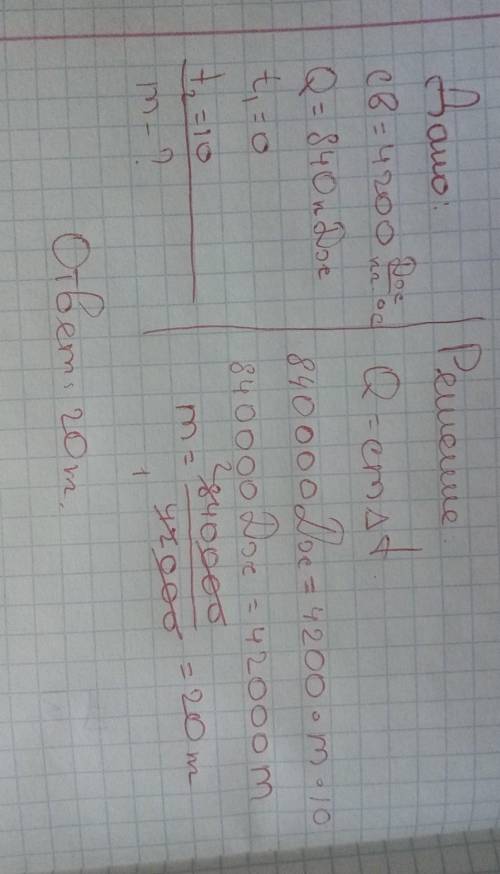 Дано:
cв = 4200 Дж/кг·°C
Q = 840 кДж
t₁ = 0
t₂ = 10
m - ?
Решение.
Q = cm∆t.
840000 Дж = 4200 · m · 10
840000 Дж = 42000 m
m = 840000/42000 = 20 m
2
1
Ответ: 20 m.